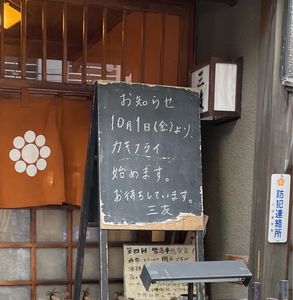 お知らせ
10月1日(金)より、
カキフライ
始めます。
お待ちしています。
三友
三友
防犯連絡所